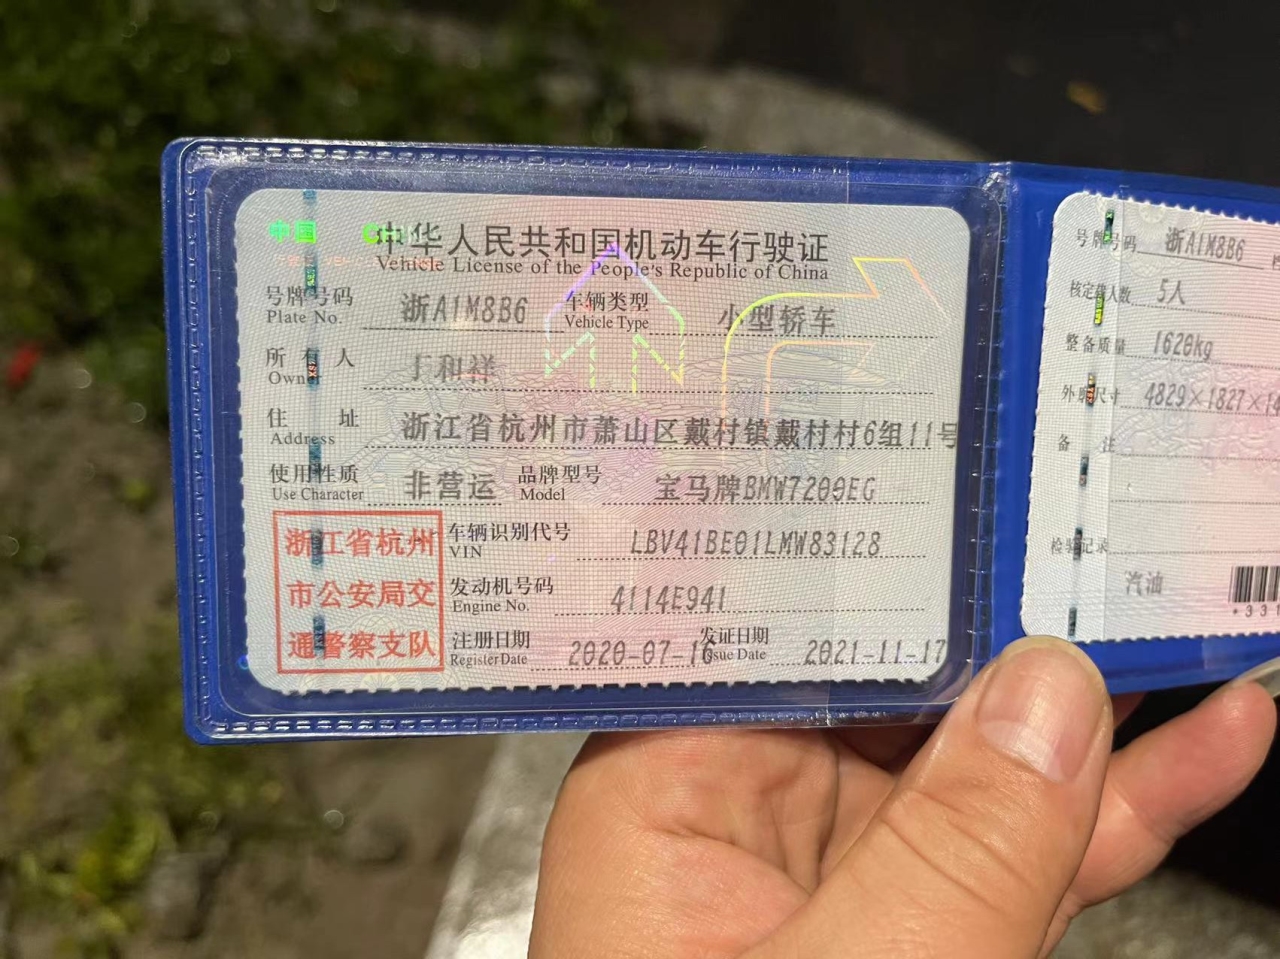 中国
中华人民共和国机动车行驶证
Vehicle License of the People's Republic of China
号牌号码 浙A1M8B6 车辆类型 小型轿车
Plate No. Vehicle Type
所有人 于和祥
Owner
住址 浙江省杭州市萧山区戴村镇戴村村6组11号
Address
使用性质 非营运 品牌型号 宝马牌BMW7209EG
Use Character Model
浙江省杭州
市公安局交
通警察支队
车辆识别代号 LBV41BE01LMW83128
VIN
发动机号码 4114E941
Engine No.
注册日期 2020-07-16 发证日期 2021-11-17
Register Date Issue Date
号牌号码 浙A1M8B6
核定载人数 5人
整备质量 1620kg
外廓尺寸 4829×1827×
备注
检验记录
汽油
*33